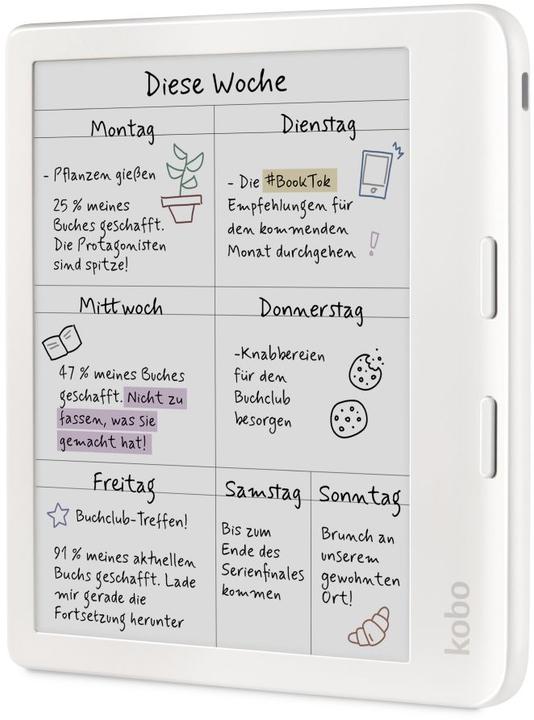 Diese Woche
Montag
- Pflanzen gießen
25 % meines
Buches geschafft.
Die Protagonisten
sind spitze!
Dienstag
- Die #BookTok
Empfehlungen für
den kommenden
Monat durchgehen
!
Mittwoch
47 % meines Buches
geschafft. Nicht zu
fassen, was Sie
gemacht hat!
Donnerstag
-Knabbereien
für den
Buchclub
besorgen
Freitag
Buchclub-Treffen!
91 % meines aktuellen
Buchs geschafft. Lade
mir gerade die
Fortsetzung herunter
Samstag
Bis zum
Ende des
Serienfinales
kommen
Sonntag
Brunch an
unserem
gewohnten
Ort!
kobo